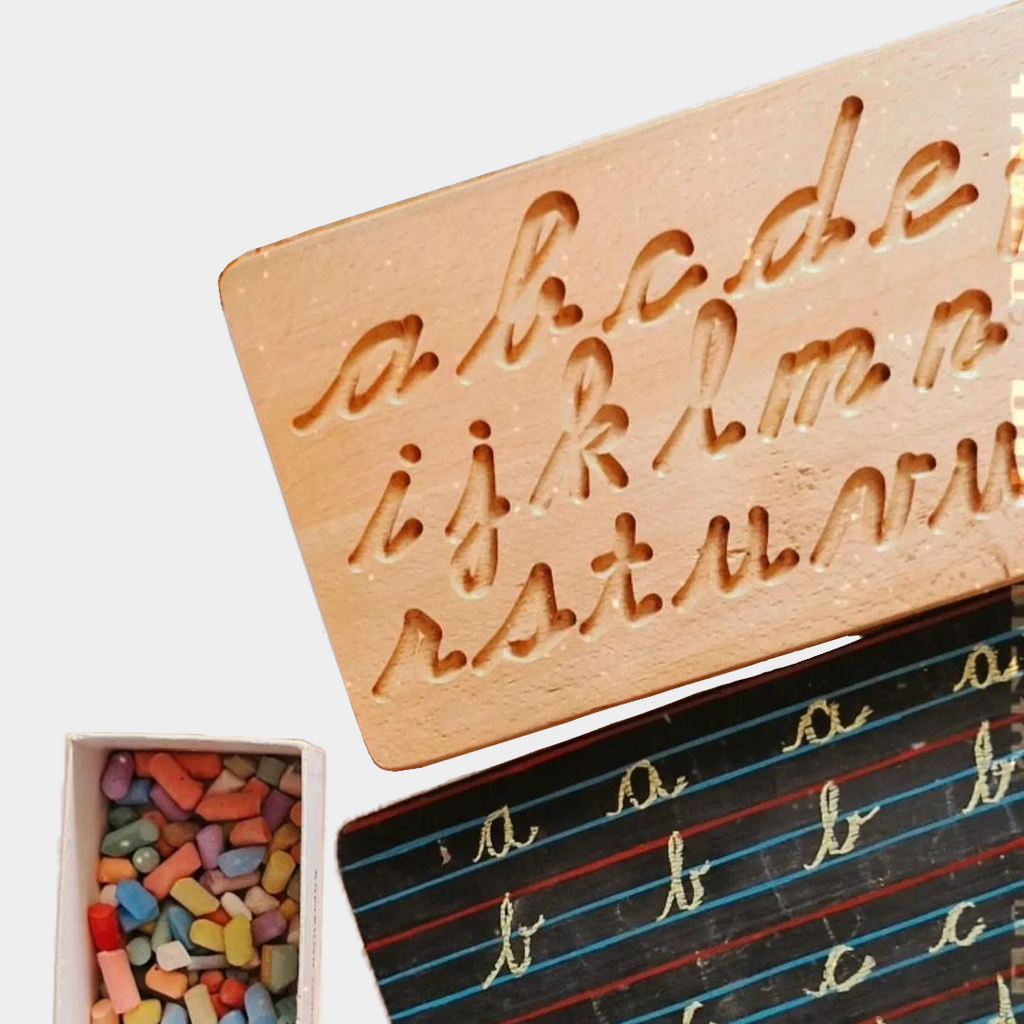 a b c d e
i j k l m n
r s t u v w
a a a a
b b b b
c c